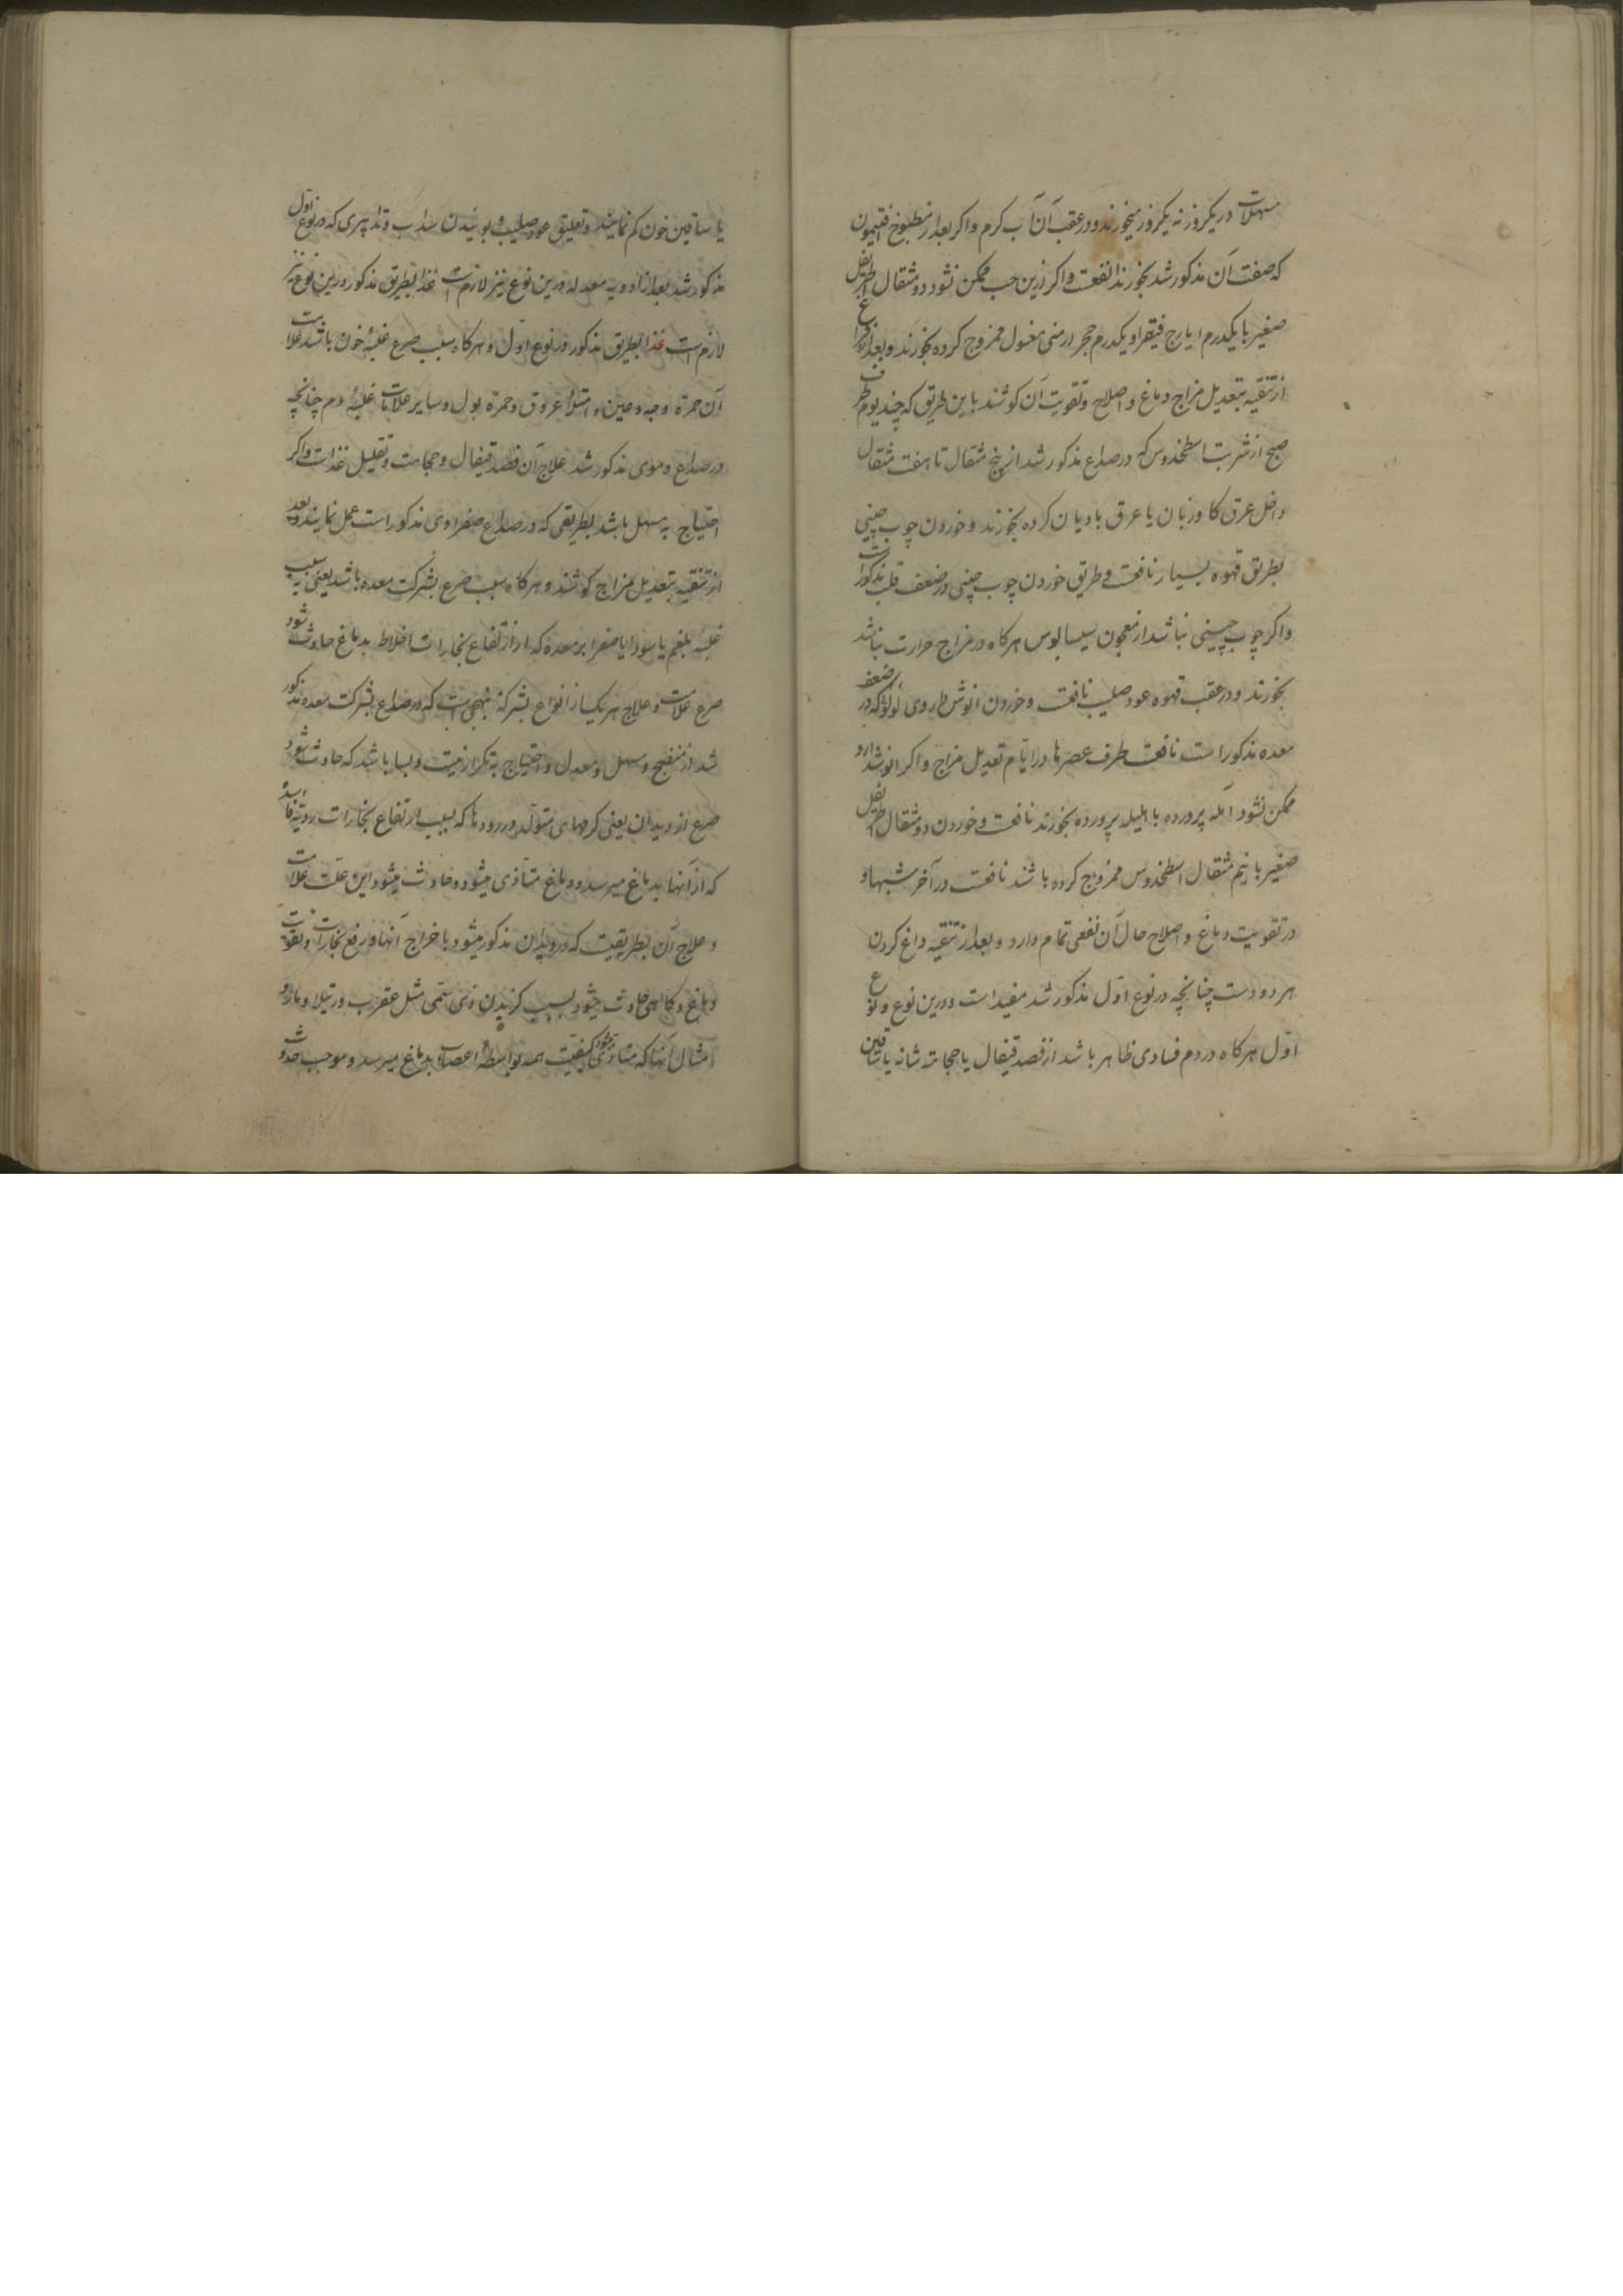 مسهلات در یکروز نه یکروز میخورند و در عقب آن آب کرم و اکر بعد از مطبوخ افتیمون
که صفت آن مذکور شد بخورند انفعت و اکر ازین حب ممکن نشود دو مثقال اطریفل
صغیر با یکدرم ایارج فیقرا و یکدرم حجر ارمنی مغسول ممزوج کرده بخورند و بعد از فراغ
از تنقیه بتعدیل مزاج دماغ و اصلاح و تقویت آن کوشند باین طریق که چند یوم
صبح از شربت اسطخدوس که در صداع مذکور شد از پنج مثقال تا هفت مثقال
داخل عرق کاوزبان یا عرق بادیان کرده بخورند و خوردن چوب چینی
بطریق قهوه بسیار نافعت و طریق خوردن چوب چینی در ضعف قلب مذکور است
و اکر چوب چینی نباشد از معجون سیسالیوس هرکاه در مزاج حرارت نباشد
بخورند و در عقب قهوه عود صلیب نافعت و خوردن انوش داروی لؤلؤ که در ضعف
معده مذکور است نافعت طرف عصرها در ایام تعدیل مزاج و اکر انوشدارو
ممکن نشود آمله پرورده با هلیله پرورده بخورند نافعت و خوردن دو مثقال اطریفل
صغیر با نیم مثقال اسطخدوس ممزوج کرده باشند نافعت در آخر شبها و
در تقویت دماغ و اصلاح حال آن نفعی تمام دارد و بعد از تنقیه داغ کردن
هر دو دست چنانچه در نوع اول مذکور شد مفید است و درین نوع و نوع
اول هرکاه در دم فسادی ظاهر باشد از فصد قیفال یا حجامة شانه یا ساقین
یا ساقین خون کم نمایند و تعلیق عود صلیب و بوئیدن سداب و تدابیری که در نوع اول
مذکور شد بعد از ادویه معدله درین نوع نیز لازم است غذا بطریق مذکور درین نوع نیز
لازم است غذا بطریق مذکور در نوع اول و هرکاه سبب صرع غلبهٔ خون باشد علامت
آن حمرة وجه و عین و امتلأ عروق و حمرة بول و سایر علامات غلبهٔ دم چنانچه
در صداع دموی مذکور شد علاج آن فصد قیفال و حجامت و تقلیل غذا است و اکر
احتیاج به مسهل باشد بطریقی که در صداع صفراوی مذکور است عمل نمایند و بعد
از تنقیه بتعدیل مزاج کوشند و هرکاه سبب صرع بشرکت معده باشد یعنی به سبب
غلبهٔ بلغم یا سودا یا صفرا بر معده که از ارتفاع بخارات اخلاط بدماغ حادث شود
صرع علامت و علاج هر یک از انواع بشرکة بنهجی است که در صداع بشرکت معده مذکور
شد از منضج و مسهل و معدل و احتیاج به تکرار نیست و بسا باشد که حادث شود
صرع از دیدان یعنی کرمهای متولد در رودها که بسبب ارتفاع بخارات ردیهٔ فاسده
که از آنها بدماغ میرسد و دماغ متأذی میشود و حادث میشود این علت علامت
و علاج آن بطریقیست که در دیدان مذکور میشود باخراج آنها و رفع بخارات و تقویت
دماغ و کاهی حادث میشود بسبب کزیدن ذی سمّی مثل عقرب و رتیلا و مار و
امثال آنها که متأذی میشود کیفیت سمیه بواسطهٔ اعصاب بدماغ میرسد و موجب حدوث